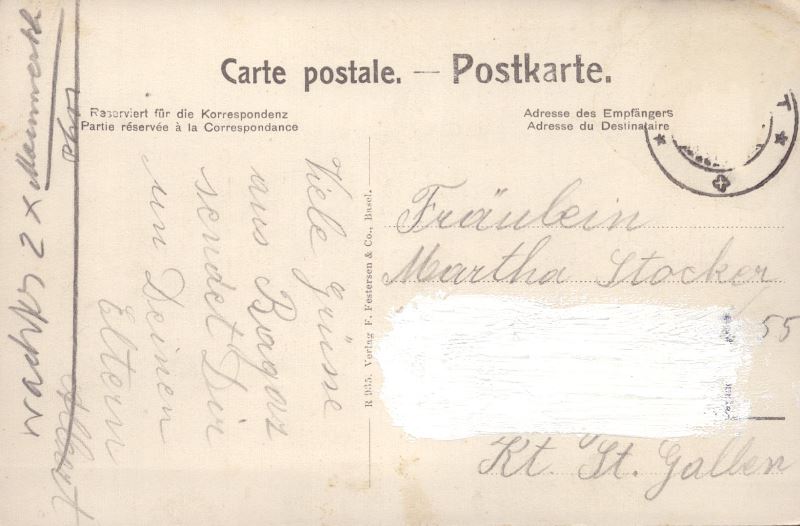 Carte postale. — Postkarte.
Reserviert für die Korrespondenz
Partie réservée à la Correspondance
Adresse des Empfängers
Adresse du Destinataire
T
Viele Grüsse
aus Ragaz
sendet Dir
un Deinen
Eltern
Albert
R 935. Verlag F. Festersen & Co., Basel.
Fräulein
Martha Stocker
55
Kt. St. Gallen